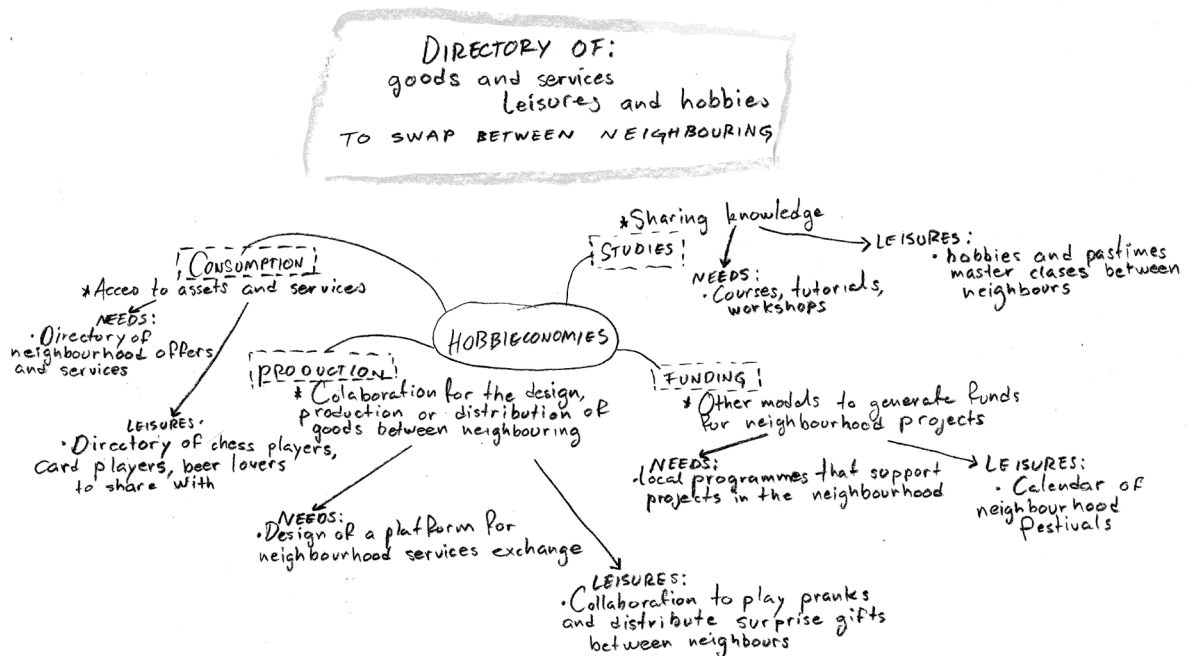 DIRECTORY OF:
goods and services
Leisures and hobbies
TO SWAP BETWEEN NEIGHBOURING
HOBBIECONOMIES
CONSUMPTION
*Acces to assets and services
NEEDS:
·Directory of
neighbourhood offers
and services
LEISURES·
·Directory of chess players,
card players, beer lovers
to share with
PRODUCTION
* Colaboration for the design,
production or distribution of
goods between neighbouring
NEEDS:
·Design of a platform for
neighbourhood services exchange
LEISURES:
·Collaboration to play pranks
and distribute surprise gifts
between neighbours
*Sharing knowledge
STUDIES
NEEDS:
·Courses, tutorials,
workshops
LEISURES:
·hobbies and pastimes
master clases between
neighbours
FUNDING
* Other models to generate funds
for neighbourhood projects
NEEDS:
·local programmes that support
projects in the neighbourhood
LEISURES:
·Calendar of
neighbourhood
festivals